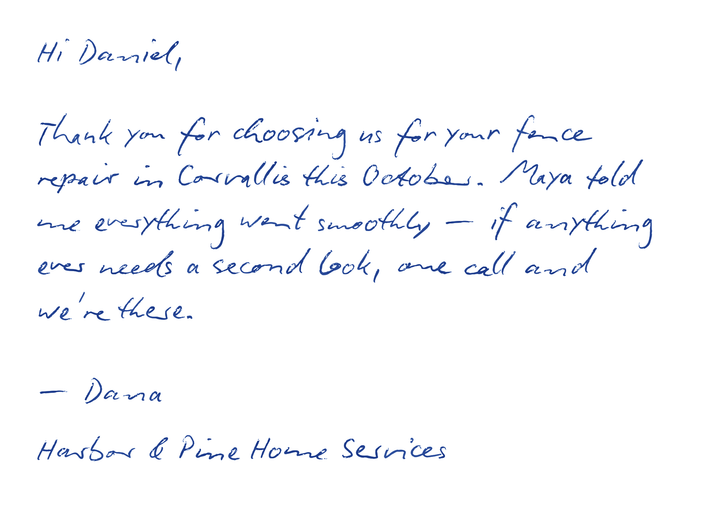 Hi Daniel,
Thank you for choosing us for your fence
repair in Corvallis this October. Maya told
me everything went smoothly — if anything
ever needs a second look, one call and
we're there.
— Dana
Harbor & Pine Home Services